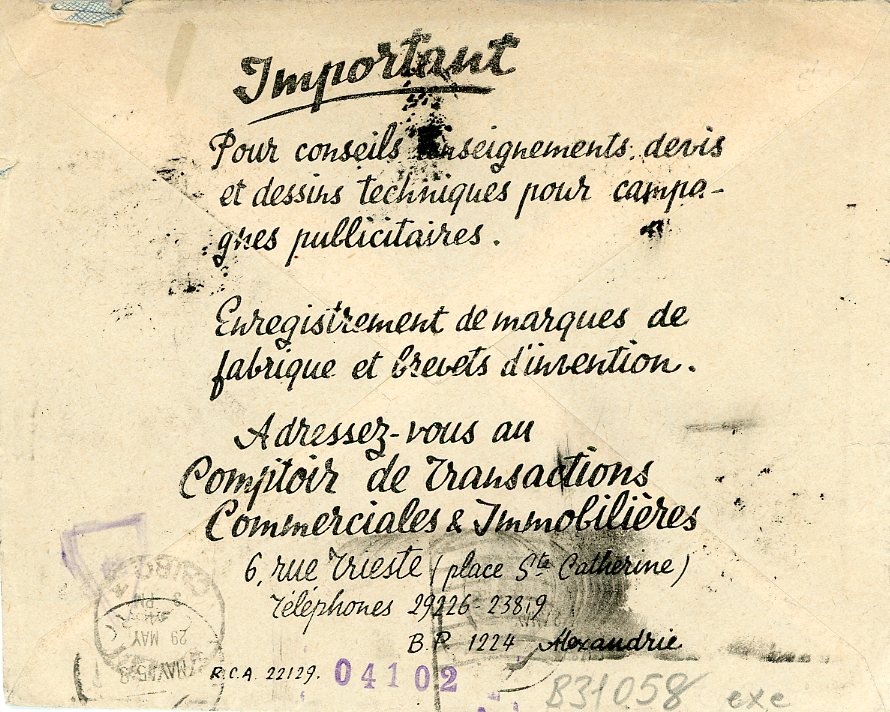 Important
Pour conseils renseignements. devis
et dessins techniques pour campa-
gnes publicitaires.
Enregistrement de marques de
fabrique et brevets d'invention.
Adressez-vous au
Comptoir de Transactions
Commerciales & Immobilières
6, rue Trieste (place Ste Catherine)
Téléphones 29226-23819
B.P. 1224 Alexandrie
R.C.A. 22129. 04102
B31058 exe
CAIRO
PM
29 MAY